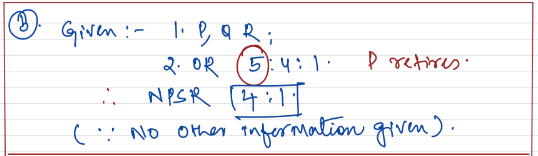 (B). Given :- 1. P, Q R ;
2. OR 5 : 4 : 1. P retires.
∴ NPSR 4 : 1.
( ∵ No other information given ).